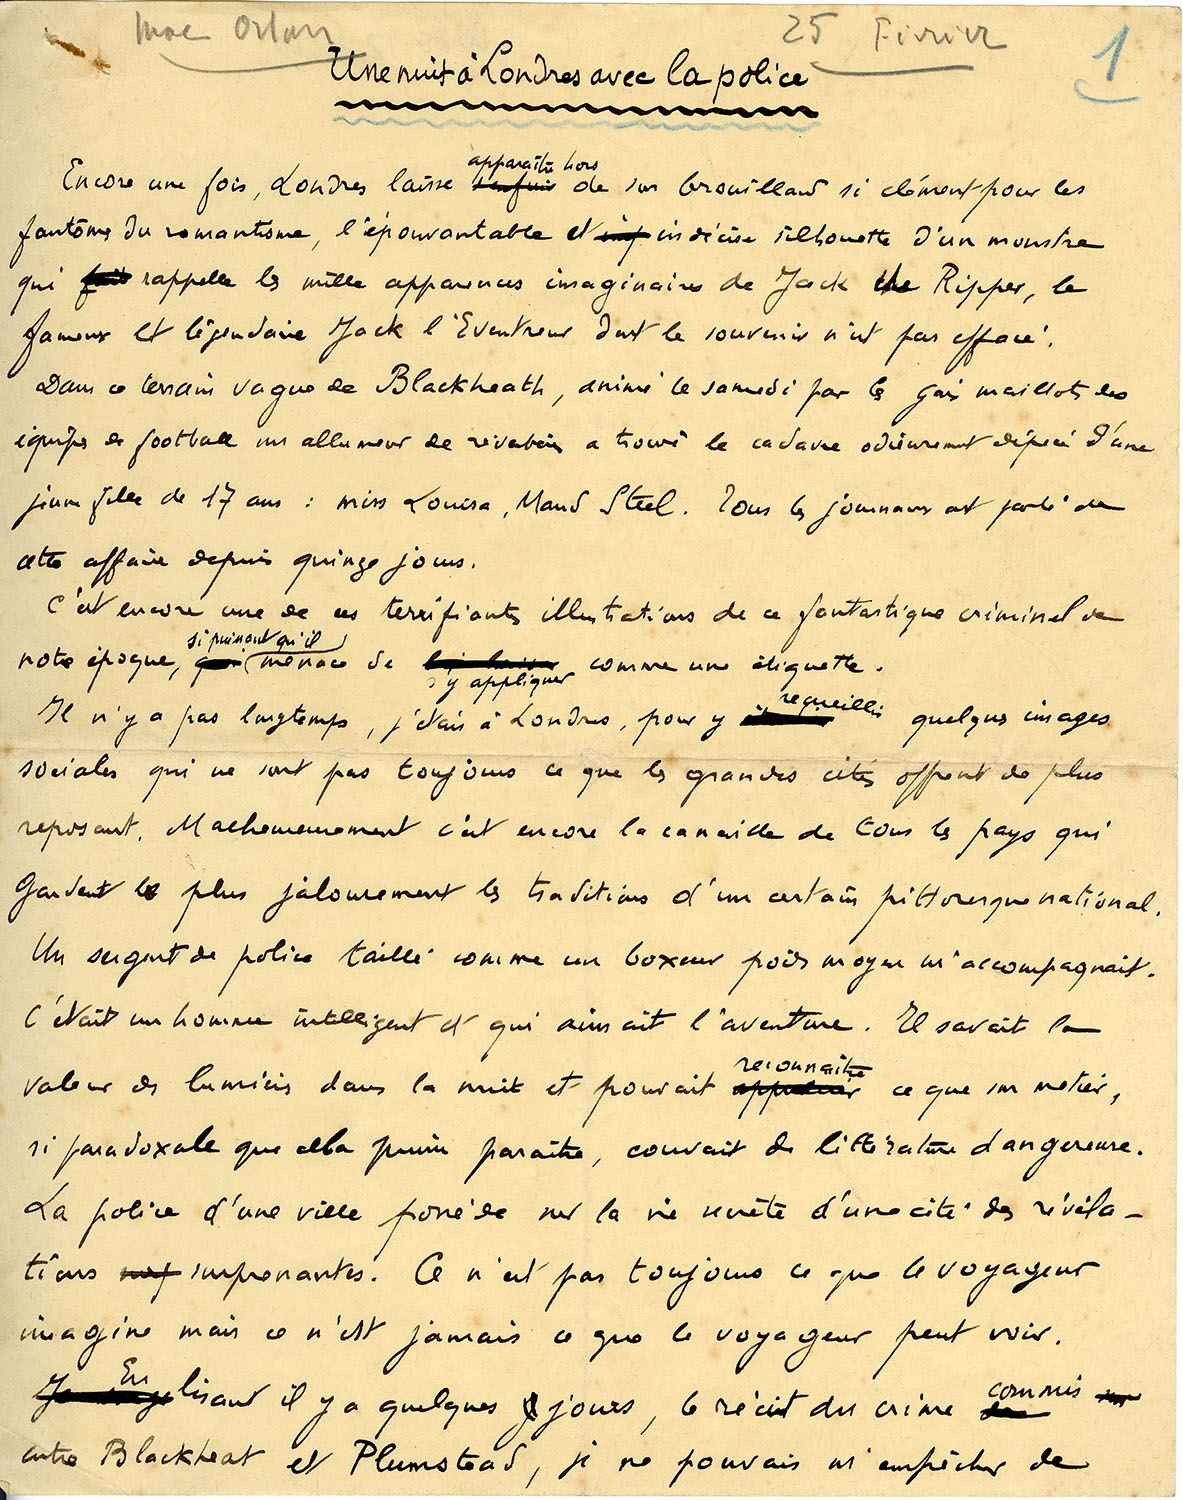 Mac Orlan 25 Février 1
Une nuit à Londres avec la police
apparaître hors
Encore une fois, Londres laisse s'enfuir de son brouillard si clément pour les
fantômes du romantisme, l'épouvantable et indécise silhouette d'un monstre
qui fait rappelle les mille apparences imaginaires de Jack the Ripper, le
fameux et légendaire Jack l'Eventreur dont le souvenir n'est pas effacé.
Dans ce terrain vague de Blackheath, animé le samedi par les gais maillots des
équipes de football un allumeur de réverbères a trouvé le cadavre odieusement dépecé d'une
jeune fille de 17 ans : miss Louisa, Maud Steel. Tous les journaux ont parlé de
cette affaire depuis quinze jours.
C'est encore une de ces terrifiantes illustrations de ce fantastique criminel de
si puissant qu'il
notre époque, qui menace de comme une étiquette.
s'y appliquer
recueillir
Il n'y a pas longtemps, j'étais à Londres, pour y quelques images
sociales qui ne sont pas toujours ce que les grandes cités offrent de plus
reposant. Malheureusement c'est encore la canaille de tous les pays qui
gardent le plus jalousement les traditions d'un certain pittoresque national.
Un sergent de police taillé comme un boxeur poids moyen m'accompagnait.
C'était un homme intelligent et qui aimait l'aventure. Il savait la
reconnaître
valeur des lumières dans la nuit et pouvait apprécier ce que son métier,
si paradoxale que cela puisse paraître, couvait de littérature dangereuse.
La police d'une ville possède sur la vie secrète d'une cité des révéla-
tions surprenantes. Ce n'est pas toujours ce que le voyageur
imagine mais ce n'est jamais ce que le voyageur peut voir.
En commis
lisant il y a quelques jours, le récit du crime
entre Blackheat et Plumstead, je ne pouvais m'empêcher de